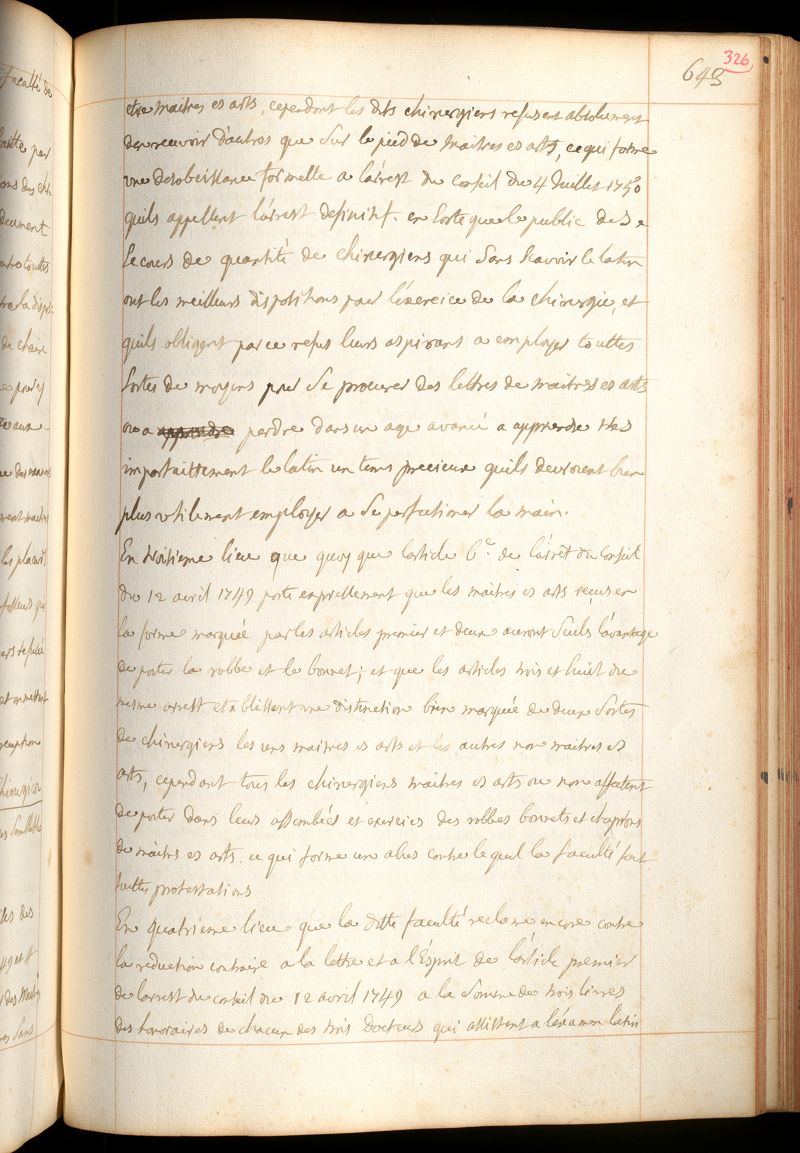 326
643
etre maitres es arts, cependant les dits chirurgiens refusent absolument
den recevoir d'autres que sur le pied de maitres es arts, ce qui forme
une desobeissance formelle a l'arrest du conseil du 4 Juillet 1750
quils appellent l'arrest definitif. en sorte que le public
secours de quantité de chirurgiens qui sans scavoir le latin
ont les meilleurs dispositions pour l'exercice de la chirurgie, et
quils obligent par ce refus leurs aspirans a employer touttes
sortes de moyens pour se procurer des lettres de maitres es arts
ou a apprendre perdre dans un age avancé a apprendre tres
imparfaittement le latin un tems precieux quils devroient bien
plus utilement employer a se perfectionner la main.
En troisieme lieu que quoy que l'article 6e. de l'arrêt du conseil
du 12 avril 1749 porte expressement que les maitres es arts reçus en
la forme marquée par les articles premier et deux auront seuls l'avantage
de porter la robbe et le bonnet; et que les articles trois et huit du
mesme arrest etablissent une distinction bien marquée de deux sortes
de chirurgiens les uns maitres es arts et les autres non maitres es
arts, cependant tous les chirurgiens maitres es arts ou non affectent
de porter dans leurs assemblées et exercices des robbes bonnets et chaprons
de maitres es arts. ce qui forme un abus contre lequel la faculté fait
touttes protestations
En quatrieme lieu que la ditte faculté reclame encore contre
la reduction contraire a la lettre et a l'Esprit de l'article premier
de l'arrest du conseil du 12 avril 1749 a la somme de trois livres
des honoraires de chacun des trois Docteurs qui assistent a l'examen latin